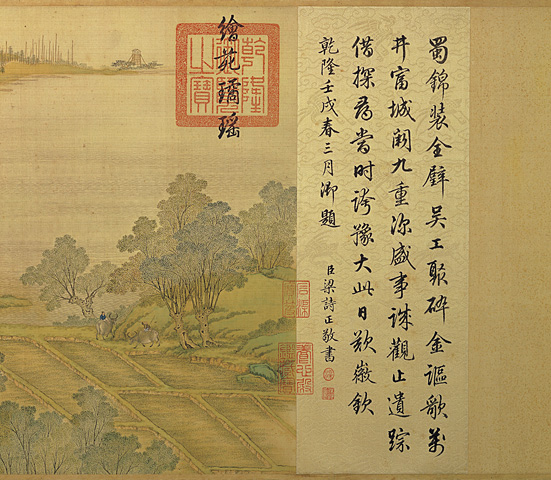 蜀錦裝金璧吳工聚碎金謳歌萬
井富城闕九重深盛事誠觀止遺踪
借探尋當時誇豫大此日歎徽欽
乾隆壬戌春三月御題
臣梁詩正敬書
繪苑璚瑤
乾隆
御覽
之寶